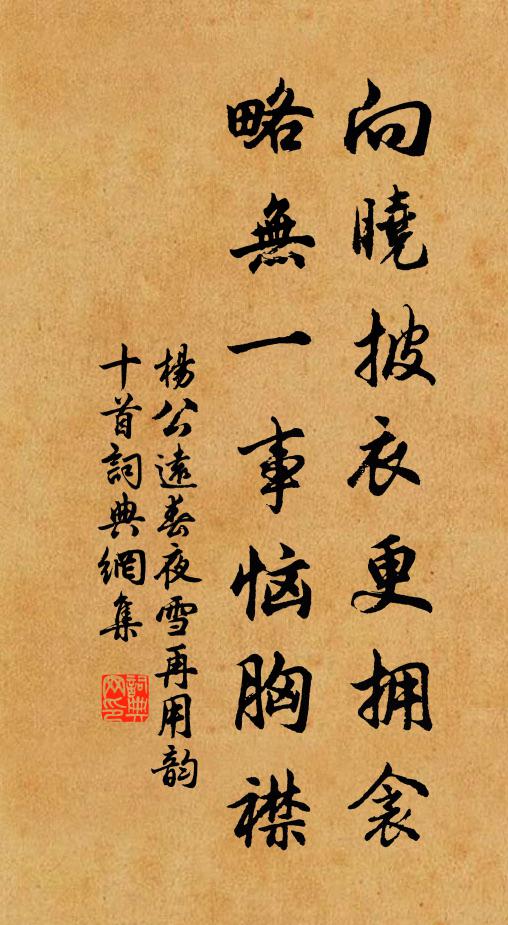 向曉披衣更拥衾
略無一事恼胸襟
楊公遠春夜雪再用韵
十首詞典網集
詞典
网印